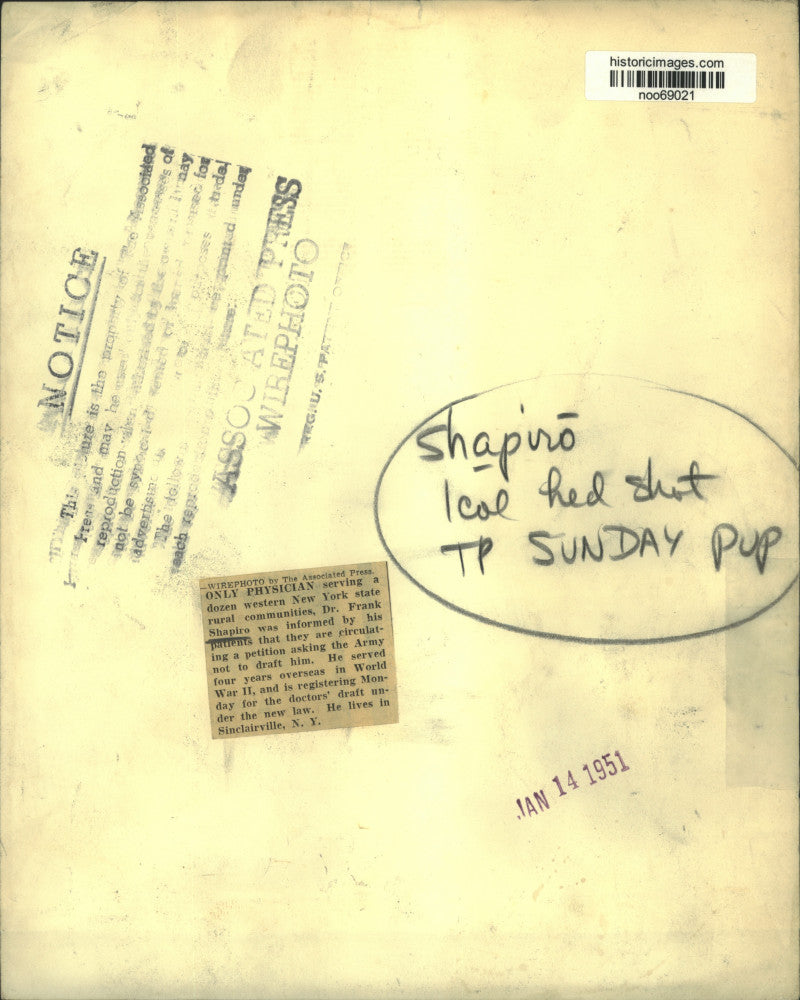 historicimages.com
noo69021
NOTICE
This picture is the property of The Associated
Press and may be used
reproduction when
not be syndicated
advertising
The following
each reproduction
ASSOCIATED PRESS
WIREPHOTO
REG. U. S. PATENT OFFICE
Shapiro
1 col hed shot
TP SUNDAY PUP
—WIREPHOTO by The Associated Press.
ONLY PHYSICIAN serving a
dozen western New York state
rural communities, Dr. Frank
Shapiro was informed by his
patients that they are circulat-
ing a petition asking the Army
not to draft him. He served
four years overseas in World
War II, and is registering Mon-
day for the doctors' draft un-
der the new law. He lives in
Sinclairville, N. Y.
JAN 14 1951